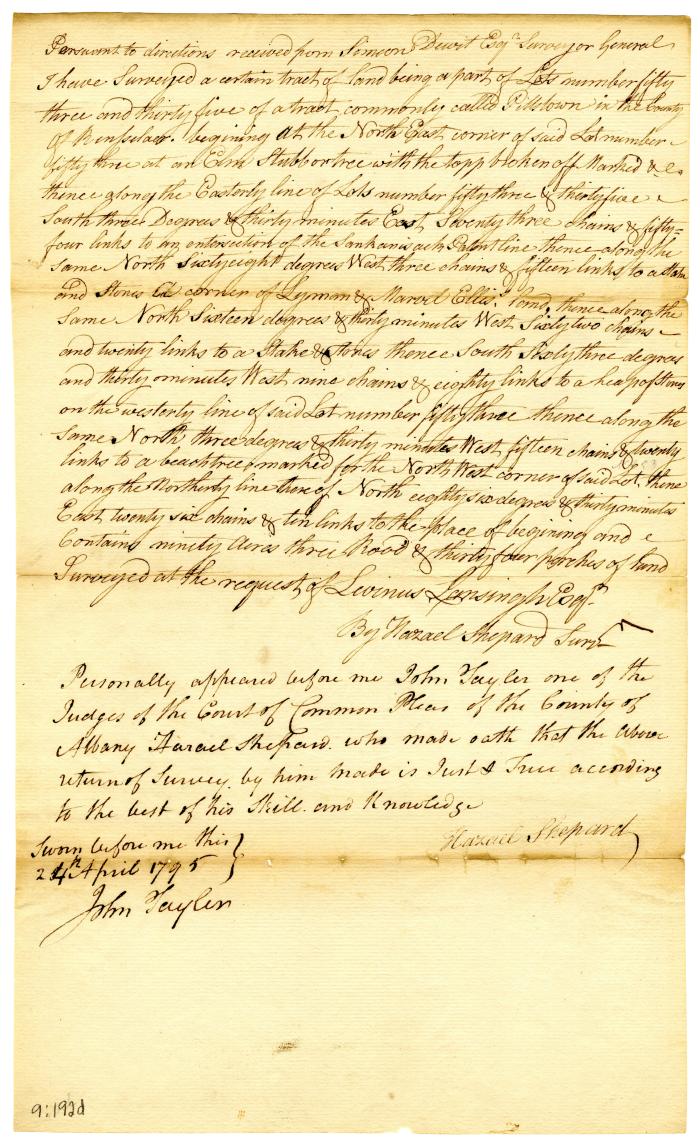 Persuant to directions received from Simeon Dewit Esqr. Surveyor General
I have Surveyed a certain tract of land being a part of Lots number fifty
three and thirty five of a tract commonly called Pittstown in the County
of Rensselaer. begining at the North East corner of said Lot number
fifty three at an Elm Stubb or tree with the topp broken off Marked &c
thence along the Easterly line of Lots number fifty three & thirty five
South three Degrees & thirty minutes East Seventy three chains & fifty-
four links to an entersection of the Sankanisack Patent line thence along the
same North Sixty eight degrees West three chains & fifteen links to a Stake
and Stones corner of Lyman & Marvel Ellis' land, thence along the
same North Sixteen degrees & thirty minutes West Sixty two chains
and twenty links to a Stake & stones thence South Sixty three degrees
and thirty minutes West nine chains & eighty links to a heap of Stones
on the westerly line of said Lot number fifty three thence along the
same North three degrees & thirty minutes West fifteen chains & twenty
links to a beach tree marked for the North West corner of said Lot. thene
along the Northerly line there of North eighty six degrees & thirty minutes
East twenty six chains & ten links to the place of begining and
Contains ninety Acres three Rood & thirty four perches of land
Surveyed at the request of Levinus Lansingh Esqr.
By Hazael Shepard Survr
Personally appeared before me John Tayler one of the
Judges of the Court of Common Pleas of the County of
Albany Hazael Sheppard. who made oath that the above
return of Survey. by him made is Just & True according
to the best of his Skill. and Knowledge
Hazael Shepard
Sworn before me this
24th April 1795
John Tayler
9:192d